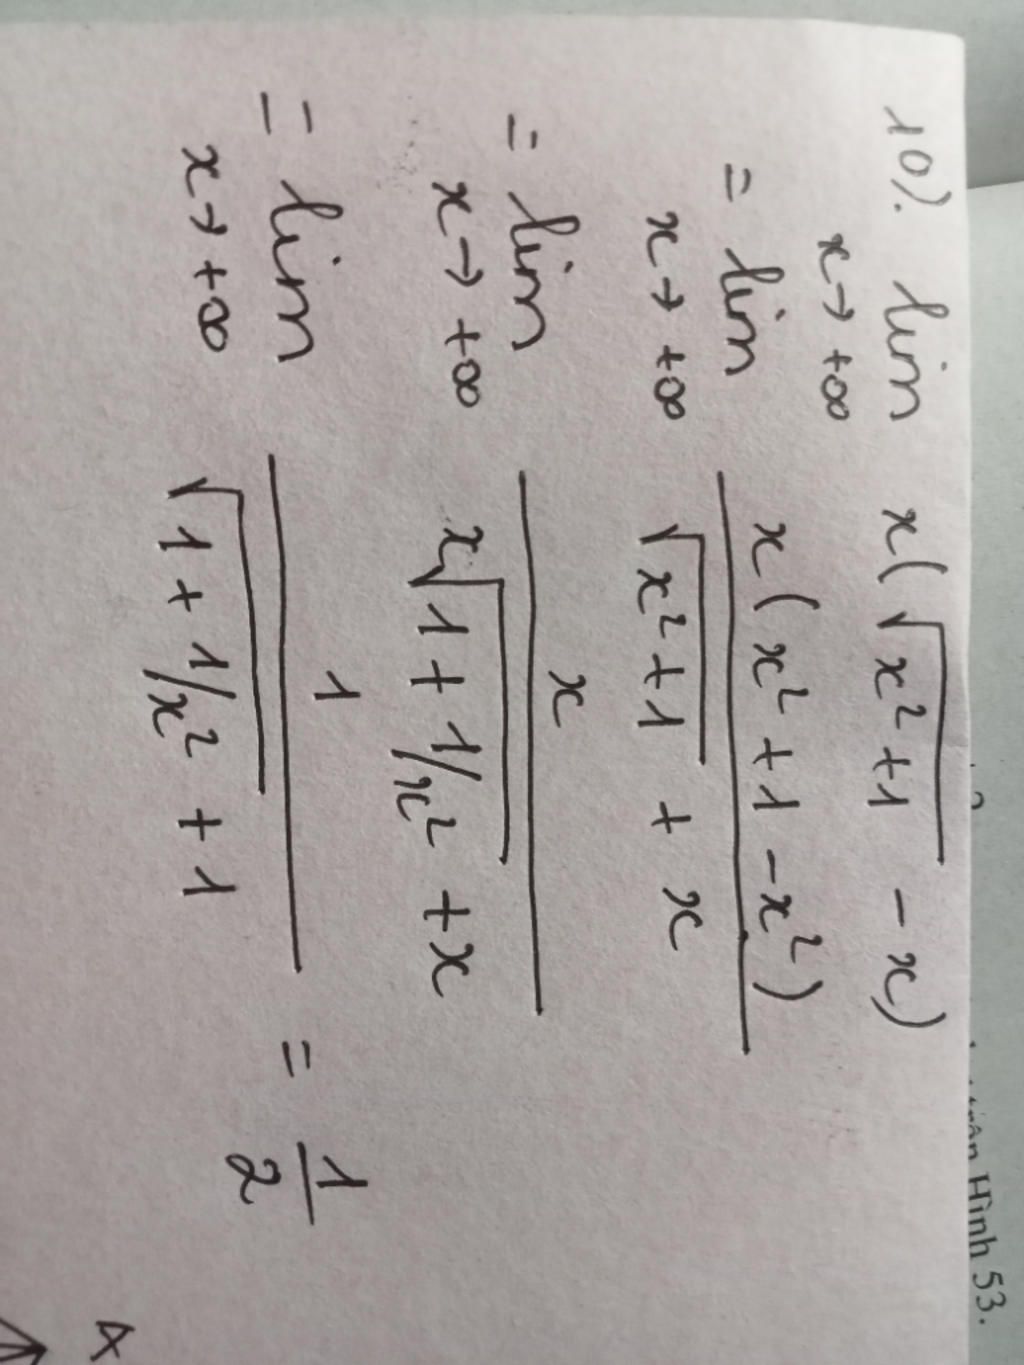 10). lim x(√x²+1 - x)
x→+∞
= lim x(x²+1-x²)
x→+∞ √x²+1 + x
= lim x
x→+∞ x√1+1/x² +x
= lim 1 = 1
x→+∞ √1+1/x² +1 2
Hình 53.